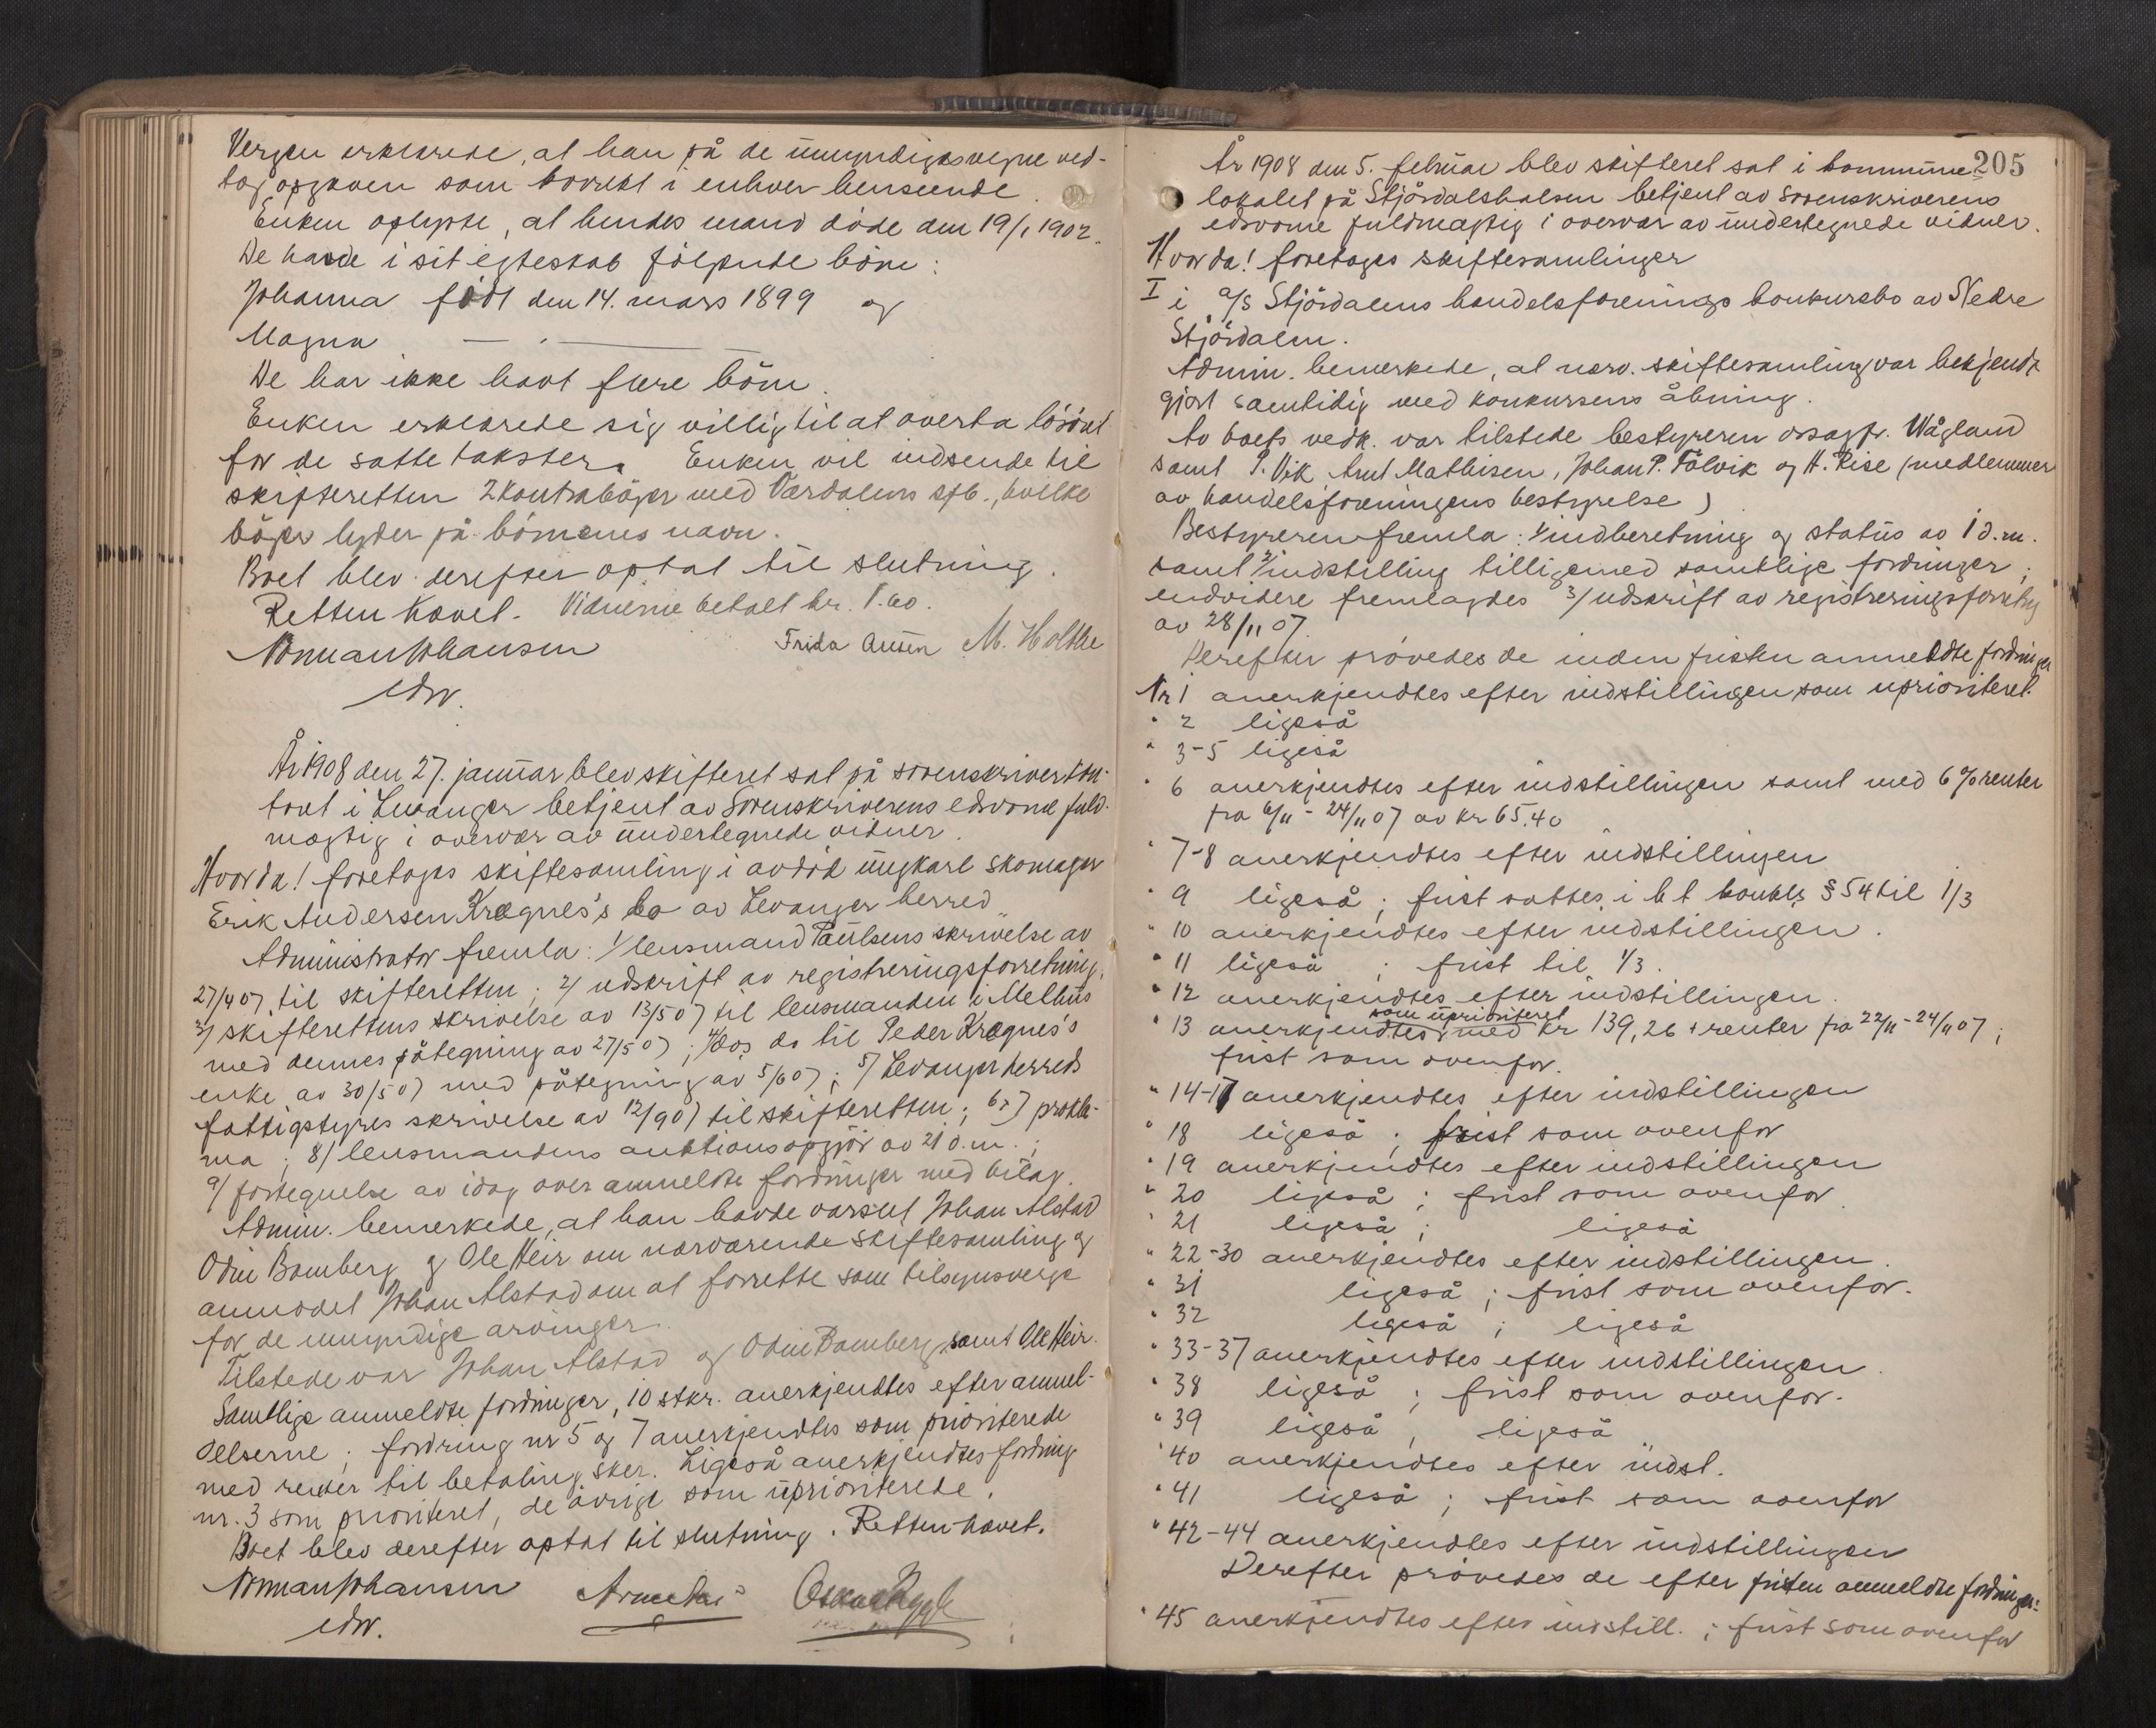 Vergen erklærede, at han på de umyndiges vegne ved-
tog opgaven som korrekt i enhver henseende.
Enken oplyste, at hendes mand døde den 19/1 1902.
De havde i sit egteskab følgende børn:
Johanna født den 14. mars 1899 og
Magna — " —
De har ikke havt flere børn.
Enken erklærede sig villig til at overta løsøret
for de satte takster. Enken vil indsende til
skifteretten 2 kontrabøger med Værdalens spb., hvilke
bøger lyder på børnenes navn.
Boet blev derefter optat til slutning.
Retten hævet. Vidnerne betalt kr. 1.60.
Norman Johansen Frida Ausen M. Holthe
edsv.
År 1908 den 27. januar blev skifteret sat på sorenskriverkon-
toret i Levanger betjent av Sorenskriverens edsvorne fuld-
mægtig i overvær av undertegnede vidner.
Hvorda! foretoges skiftesamling i avdød ungkarl skomager
Erik Andersen Krognes's bo av Levanger herred
Administrator fremla: 1/ lensmand Paulsens skrivelse av
27/4 07 til skifteretten; 2/ udskrift av registreringsforretning;
3/ skifterettens skrivelse av 13/5 07 til lensmanden i Melhus
med dennes påtegning av 27/5 07; 4/ do do til Peder Krognes's
enke av 30/5 07 med påtegning av 5/6 07; 5/ Levanger herreds
fattigstyres skrivelse av 12/9 07 til skifteretten; 6-7 prokla-
ma; 8/ lensmandens auktionsopgjør av 21 d.m.;
9/ fortegnelse av idag over anmeldte fordringer med bilag.
Admin. bemerkede, at han havde varslet Johan Alstad
Odin Bomberg og Ole Heir om nærværende skiftesamling og
anmodet Johan Alstad om at forrette som tilsynsverge
for de umyndige arvinger.
Tilstede var Johan Alstad og Odin Bomberg samt Ole Heir.
Samtlige anmeldte fordringer, 10 stkr. anerkjendtes efter anmel-
delserne; fordring nr 5 og 7 anerkjendtes som prioriterede
med renter til betaling sker. Ligeså anerkjendtes fordring
nr. 3 som prioriteret, de øvrige som uprioriterede.
Boet blev derefter optat til slutning. Retten hævet.
Norman Johansen
edsv.
205
År 1908 den 5. februar blev skifteret sat i kommune-
lokalet på Stjørdalshalsen betjent av sorenskriverens
edsvorne fuldmægtig i overvær av undertegnede vidner.
Hvorda! foretoges skiftesamlinger
I i a/s Stjørdalens handelsforenings konkursbo av Nedre
Stjørdalen.
Admin. bemerkede, at nærv. skiftesamling var bekjendt-
gjort samtidig med konkursens åbning.
Av boets vedk. var tilstede bestyreren ovsagfr. Wågland
samt P. Vik Arnt Mathisen, Johan P. Fölvik og H. Rise (medlemmer
av handelsforeningens bestyrelse)
Bestyreren fremla: 1/ indberetning og status av 1 d.m.
samt 2/ indstilling tilligemed samtlige fordringer;
endvidere fremlagdes 3/ udskrift av registreringsforretng
av 28/11 07.
Derefter prøvedes de inden fristen anmeldte fordringer
Nr 1 anerkjendtes efter indstillingen som uprioriteret.
" 2 ligeså
" 3-5 ligeså
" 6 anerkjendtes efter indstillingen samt med 6 % renter
fra 6/11 - 24/11 07 av kr 65.40
" 7-8 anerkjendtes efter indstillingen
" 9 ligeså; frist sattes i h t konkl. § 54 til 1/3
" 10 anerkjendtes efter indstillingen.
" 11 ligeså; frist til 1/3.
" 12 anerkjendtes efter indstillingen.
som uprioriteret
" 13 anerkjendtes med kr 139,26 + renter fra 22/11 - 24/11 07;
frist som ovenfor.
" 14-17 anerkjendtes efter indstillingen
" 18 ligeså; frist som ovenfor
" 19 anerkjendtes efter indstillingen
" 20 ligeså; frist som ovenfor
" 21 ligeså; ligeså
" 22-30 anerkjendtes efter indstillingen.
" 31 ligeså; frist som ovenfor.
" 32 ligeså; ligeså
" 33-37 anerkjendtes efter indstillingen.
" 38 ligeså; frist som ovenfor.
" 39 ligeså, ligeså
" 40 anerkjendtes efter indst.
" 41 ligeså; frist som ovenfor
" 42-44 anerkjendtes efter indstillingen
Derefter prøvedes de efter fristen anmeldte fordringer:
" 45 anerkjendtes efter indstill.; frist som ovenfor